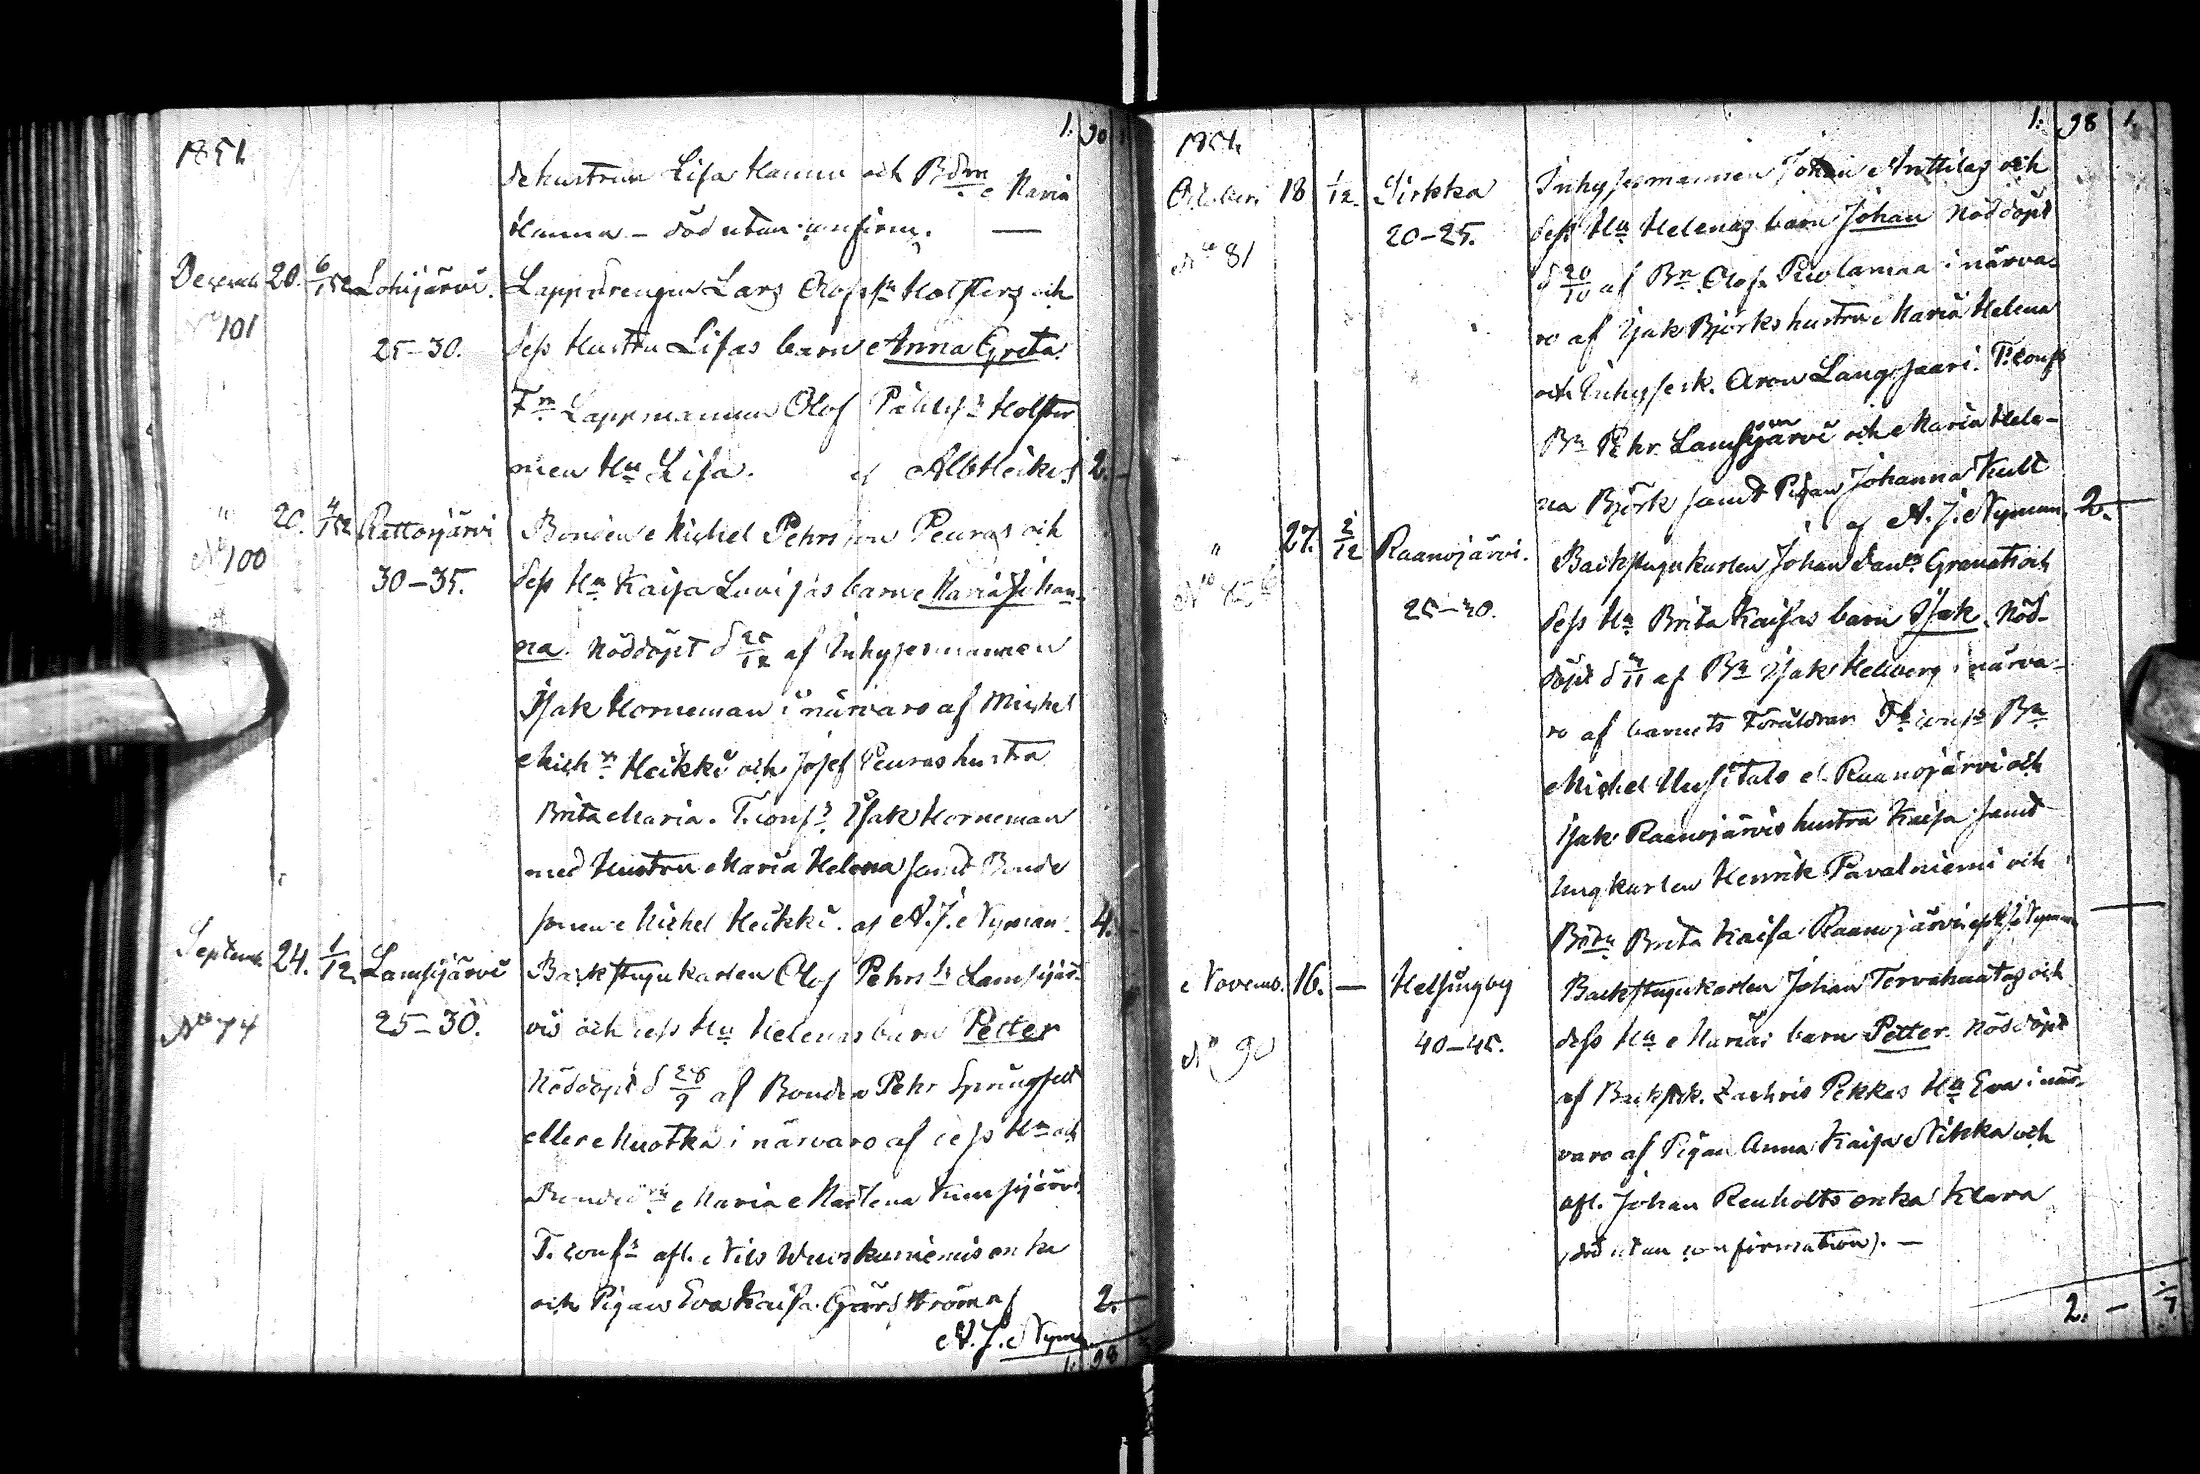 1851.
1. 90
de hustrun Lisa Hannu och Bdrn Maria
Hanna – död utan confirm. —
Decemb. 20. 6/1 52 Lohijärvi. Lappdrengen Lars Olofss:n Holsters och
No 101 25–30. dess Hustru Lisas barn Anna Greta.
Fn Lappmannen Olof Påhls:n Holster
men Hu Lisa. af Alb Heikel 2.–
" 20. 4/1 52 Rattosjärvi Bonden Michel Pehrsson Peuras och
No 100 30–35. dess Hu Kaisa Lovisas barn Maria Johan-
na. Nöddöpt d 25/12 af Inhysesmannen
Isak Horneman i närvaro af Michel
Mich:n Heikki och Josef Peuras hustru
Brita Maria. T. conf:s Isak Horneman
med Hustru Maria Helena samt Bonde
sonen Michel Heikki. af A. J. Nyman. 4.
Septemb. 24. 1/12 Lamsijärvi Backstugukarlen Olof Pehrs:s Lamsijär-
No 74 25–30. vis och dess Hu Helenas barn Petter
Nöddöpt d 28/9 af Bonden Pehr Springfelt
eller Muotka i närvaro af dess Hu och
Bonded:rn Maria Martena Kumsijärvi
T. conf:s afl. Nils Wuoskuniemis enka
och Pigan Eva Kaisa Gärdström af 2.—
A. J. Nyman
1. 98
1851.
1. 98 1.
October 18 1/12. Sirkka Inhysesmannen Johan Anttilas och
No 81 20–25. dess Hu Helenas barn Johan Nöddöpt
d 20/10 af Bn Olof Puolamaa i närva-
ro af Isak Björks hustru Maria Helena
och Inhyses k. Aron Langsjaari. T. conf:s
Bn Pehr Lamsijärvi och Maria Hele-
na Björk samt Pigan Johanna Kult
af A. J. Nyman. 2.—
" 27. 2/12 Raanojärvi. Backstugukarlen Johan Dan:s Granats och
No 25–30. dess Hu Brita Kaisas barn Isak. Nöd-
döpt d /11 af Bn Isak Hellberg i närva-
ro af barnets Föräldrar. T. conf:s Bn
Michel Uusitalo el. Raanojärvi och
Isak Raanojärvis hustru Kaisa samt
Ungkarlen Henrik Pavalniemi och
Bdrn Brita Kaisa Raanojärvi af A. J. Nyman —
Novemb. 16. — Helsingby Backstugukarlen Johan Tervahautas och
No 90 40–45. dess Hu Marias barn Petter. Nöddöpt
af Backst.k. Zachris Pekkas Hu Eva i när-
varo af Pigan Anna Kaisa Nikka och
afl. Johan Renholts enka Klara
(död utan confirmation). —
2. – 7